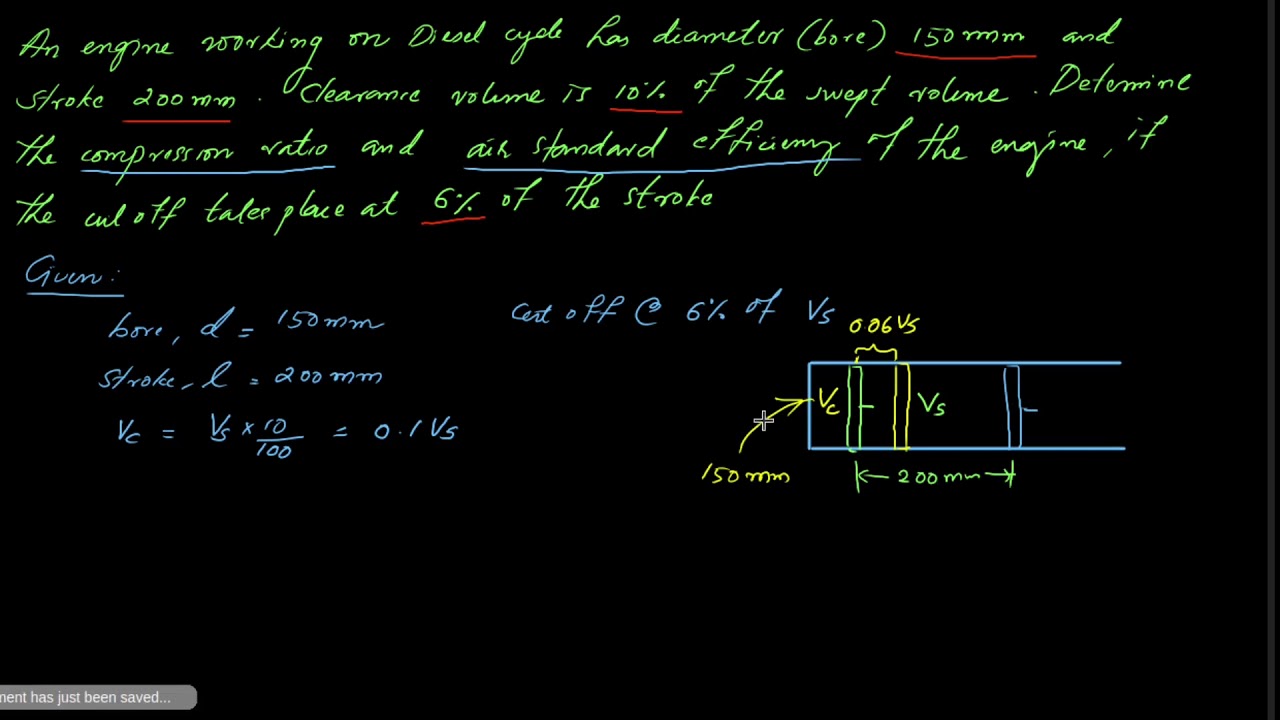 An engine working on Diesel cycle has diameter (bore) 150 mm and
stroke 200 mm. Clearance volume is 10% of the swept volume. Determine
the compression ratio and air standard efficiency of the engine, if
the cut off takes place at 6% of the stroke
Given:
bore, d = 150 mm
stroke, l = 200 mm
Vc = Vs × 10/100 = 0.1 Vs
Cut off @ 6% of Vs
0.06 Vs
Vc Vs
150 mm
200 mm
ment has just been saved...